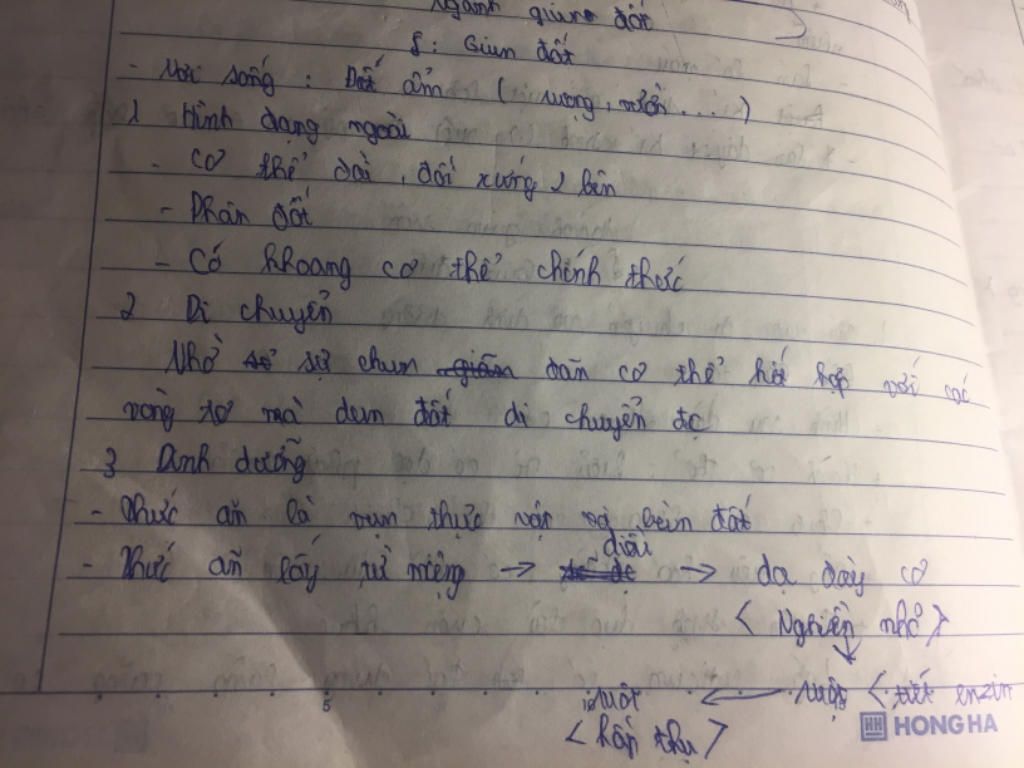 Ngành giun đốt
§: Giun đất
- Nơi sống: Đất ẩm (ruộng, vườn...)
1 Hình dạng ngoài
- Cơ thể dài, đối xứng 2 bên
- Phân đốt
- Có khoang cơ thể chính thức
2 Di chuyển
Nhờ sự chun dãn cơ thể kết hợp với các
vòng tơ mà giun đất di chuyển đc
3 Dinh dưỡng
- Thức ăn là vụn thực vật và mùn đất
diều
- Thức ăn lấy từ miệng → → dạ dày cơ
< Nghiền nhỏ >
ruột ← ruột < tiết enzim
5
< hấp thụ >
HH HONG HA